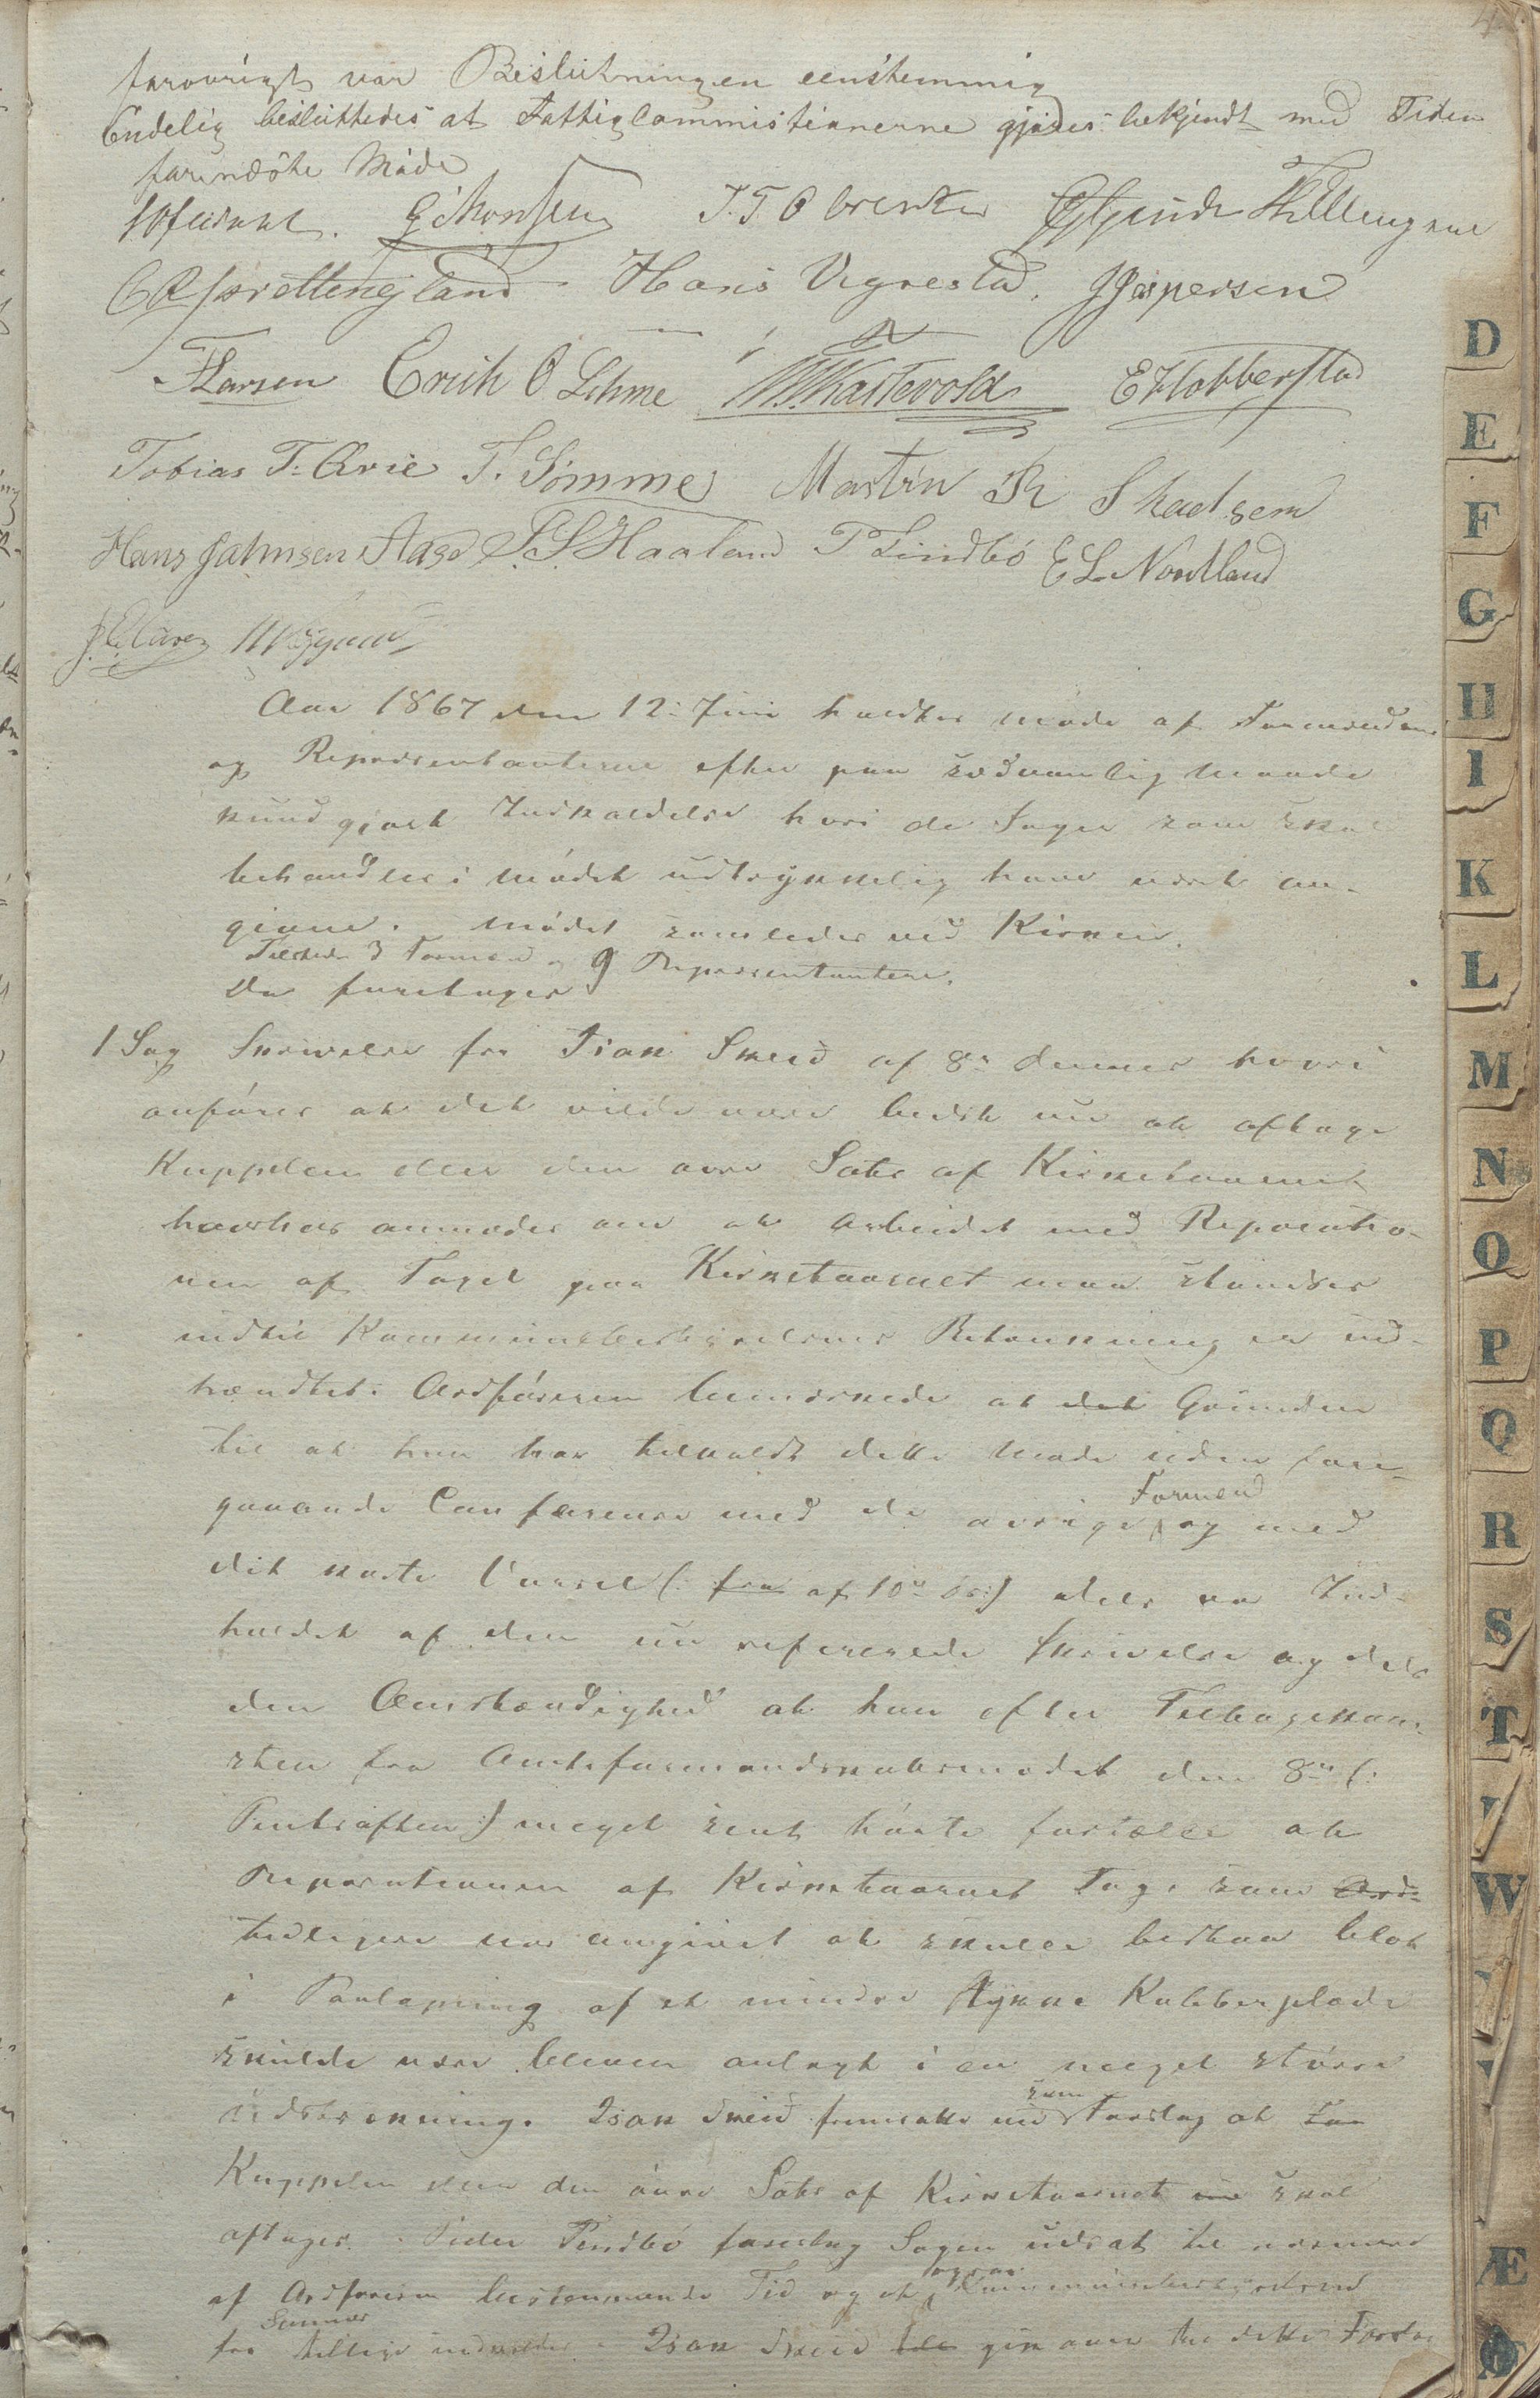 forøvrigt var Beslutningen eenstemmig
Endelig besluttedes at Fattigcommissionerne gjøres bekjendt med Tiden
for næste Møde
T. T. Obrestad
Hans Vigrestad. J Jespersen
T Larsen Erich O Lihme E Hobberstad
Tobias T. Ævie T. Sømme Martin R Skadsem
Hans Jahnsen Aase S. S. Haaland P Lindbö E L. Nordland
Aar 1867 den 12: Juni holdtes Møde af Formænd
og Repræsentanterne efter paa sædvanlig Maade
kundgjort Indkaldelse hvori de Sager som skal
behandles i Mødet udtrykkelig have været an-
givne. Mødet samledes ved Kirken.
Tilstede 3 Formænd og 9 Repræsentantere.
Da foretages
1 Sag Skrivelse fra Isak Skeid af 8de dennes hvori
anføres at det vilde være bedst nu at aftage
Kuppelen eller den øvre Sats af Kirketaarnet
hvorhos anmodes om at Arbeidet med Reparatio-
nen af Taget paa Kirketaarnet maa standses
indtil Kommunebestyrelsens Betænkning er ind-
hændtet. Ordføreren bemærkede at det Grunden
til at han har tilkaldt dette Møde uden fore-
gaaende Conference med de øvrige Formænd og med
det korte Varsel (: fra af 10de ds:) dels var Ind-
holdet af den nu refererede Skrivelse og dels
den Omstændighed at han efter Tilbagekom-
sten fra Amtsformandskabsmødet den 8de (:
Pintseaften:) meget sent hørte fortælle at
Reparationen af Kirketaarnets Tag, som Ord-
tidligere var angivet at skulle bestaa blot
i Paalapning af et mindre Stykke Kobberplade
skulde være bleven anlagt i en meget større
Udstrækning. Isak Skeid fremsatte nu som Forslag at Taa
Kuppelen eller den øvre Sats af Kirketaarnet nu skal
aftages. Peder Lindbö foreslog Sagen udsat til nærmere
af Ordføreren bestemmende Tid og at ogsaa Kommunebestyrelsen
fra Sunnæs tillige indkaldes. Isak Skeid gik over til dette Forslag